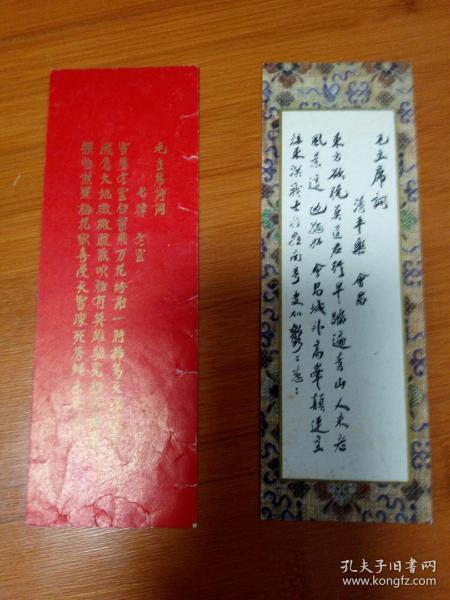 毛主席诗词
七律 冬云
雪压冬云白絮飞万花纷谢一时稀高天滚滚寒
流急大地微微暖气吹独有英雄驱虎豹更无豪
杰怕熊罴梅花欢喜漫天雪冻死苍蝇未足奇
毛主席詞
清平樂 會昌
東方欲曉莫道君行早踏遍青山人未老
風景這边独好 會昌城外高峯顛連直
接東溟戰士指看南粤更加鬱々葱々
孔夫子旧书网
www.kongfz.com